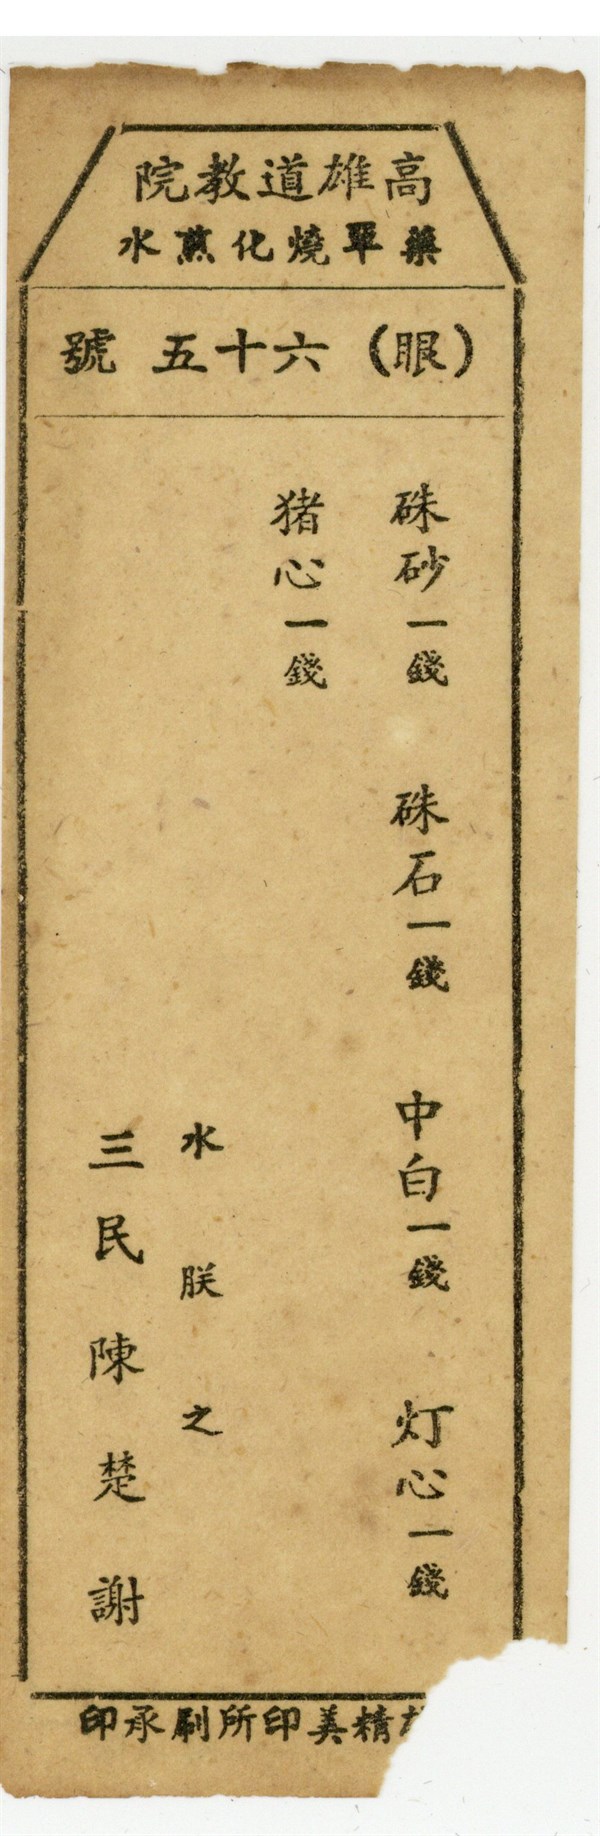 高雄道教院
藥單燒化煎水
（眼）六十五號
硃砂一錢 硃石一錢 中白一錢 灯心一錢
猪心一錢
水朕之
三民陳楚謝
精美印所刷承印